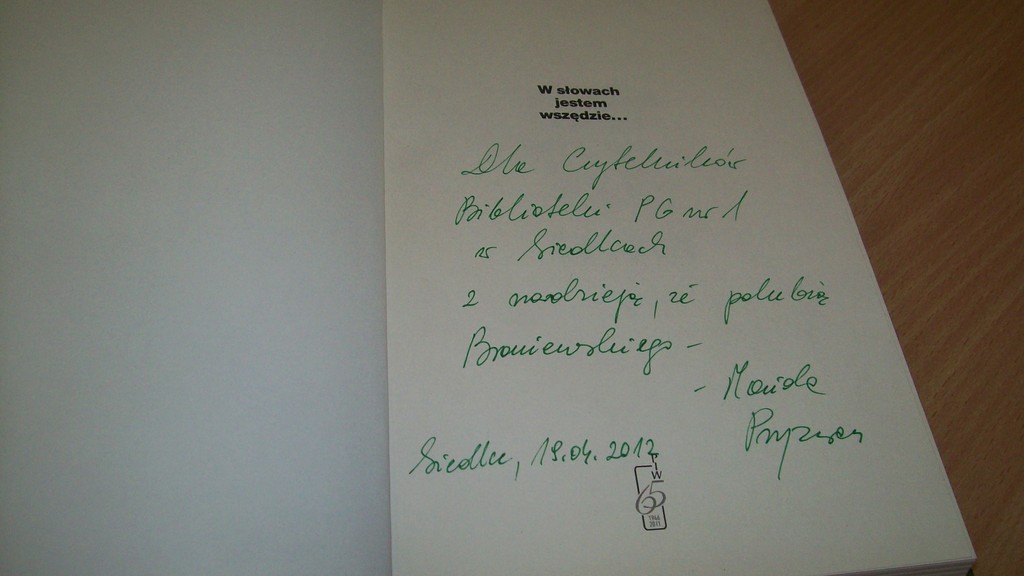 W słowach
jestem
wszędzie...
Dla Czytelników
Biblioteki PG nr 1
w Siedlcach
z nadzieją, że polubią
Broniewskiego -
- Mariola
Pryzwan
Siedlce, 19.04.2012
T
I
W
65
1946
2011